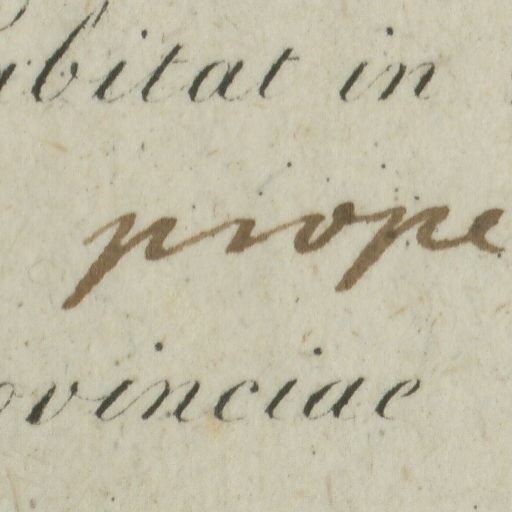 abitat in
prope
ovinciae